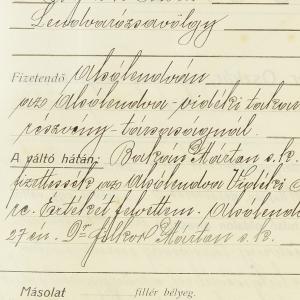 Lendvarózsavölgy
Fizetendő Alsólendván
az Alsólendva-vidéki takar
részvény-társaságnál.
A váltó hátán: Bakán Márton s. k.
fizettessék az Alsólendva Vidéki
rt. Értékét felvettem. Alsólend
27én. Dr Márton s. k.
Másolat fillér bélyeg.